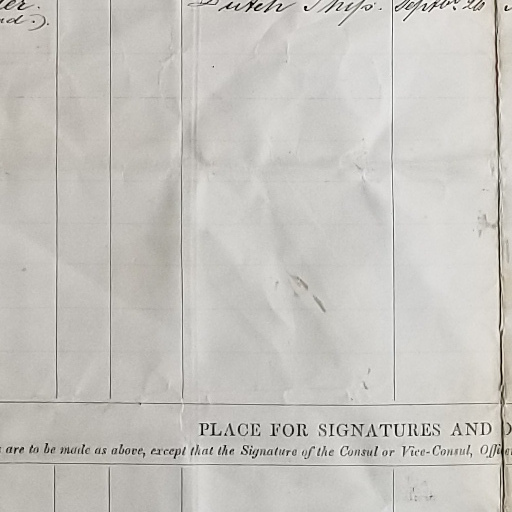 Dutch Ships. Septbr. 26
PLACE FOR SIGNATURES AND
are to be made as above, except that the Signature of the Consul or Vice-Consul,